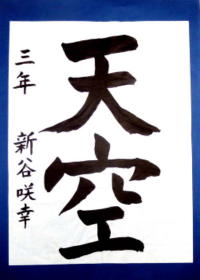 天空
三年 新谷咲幸